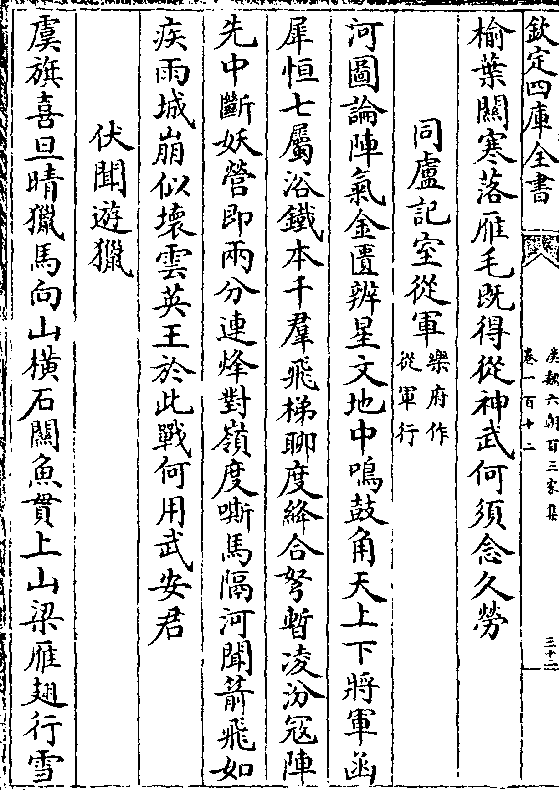 欽定四庫全書
漢魏六朝百三家集
卷一百十二
三十二
榆葉闗寒落雁毛既得從神武何須念久勞
同盧記室從軍樂府作從軍行
河圖論陣氣金匱辨星文地中鳴鼓角天上下將軍函
犀恒七屬浴鐵本千羣飛梯聊度絳合弩暫凌汾冦陣
先中斷妖營即兩分連烽對嶺度嘶馬隔河聞箭飛如
疾雨城崩似壞雲英王於此戰何用武安君
伏聞遊獵
虞旗喜旦晴獵馬向山横石闗魚貫上山梁雁翅行雪